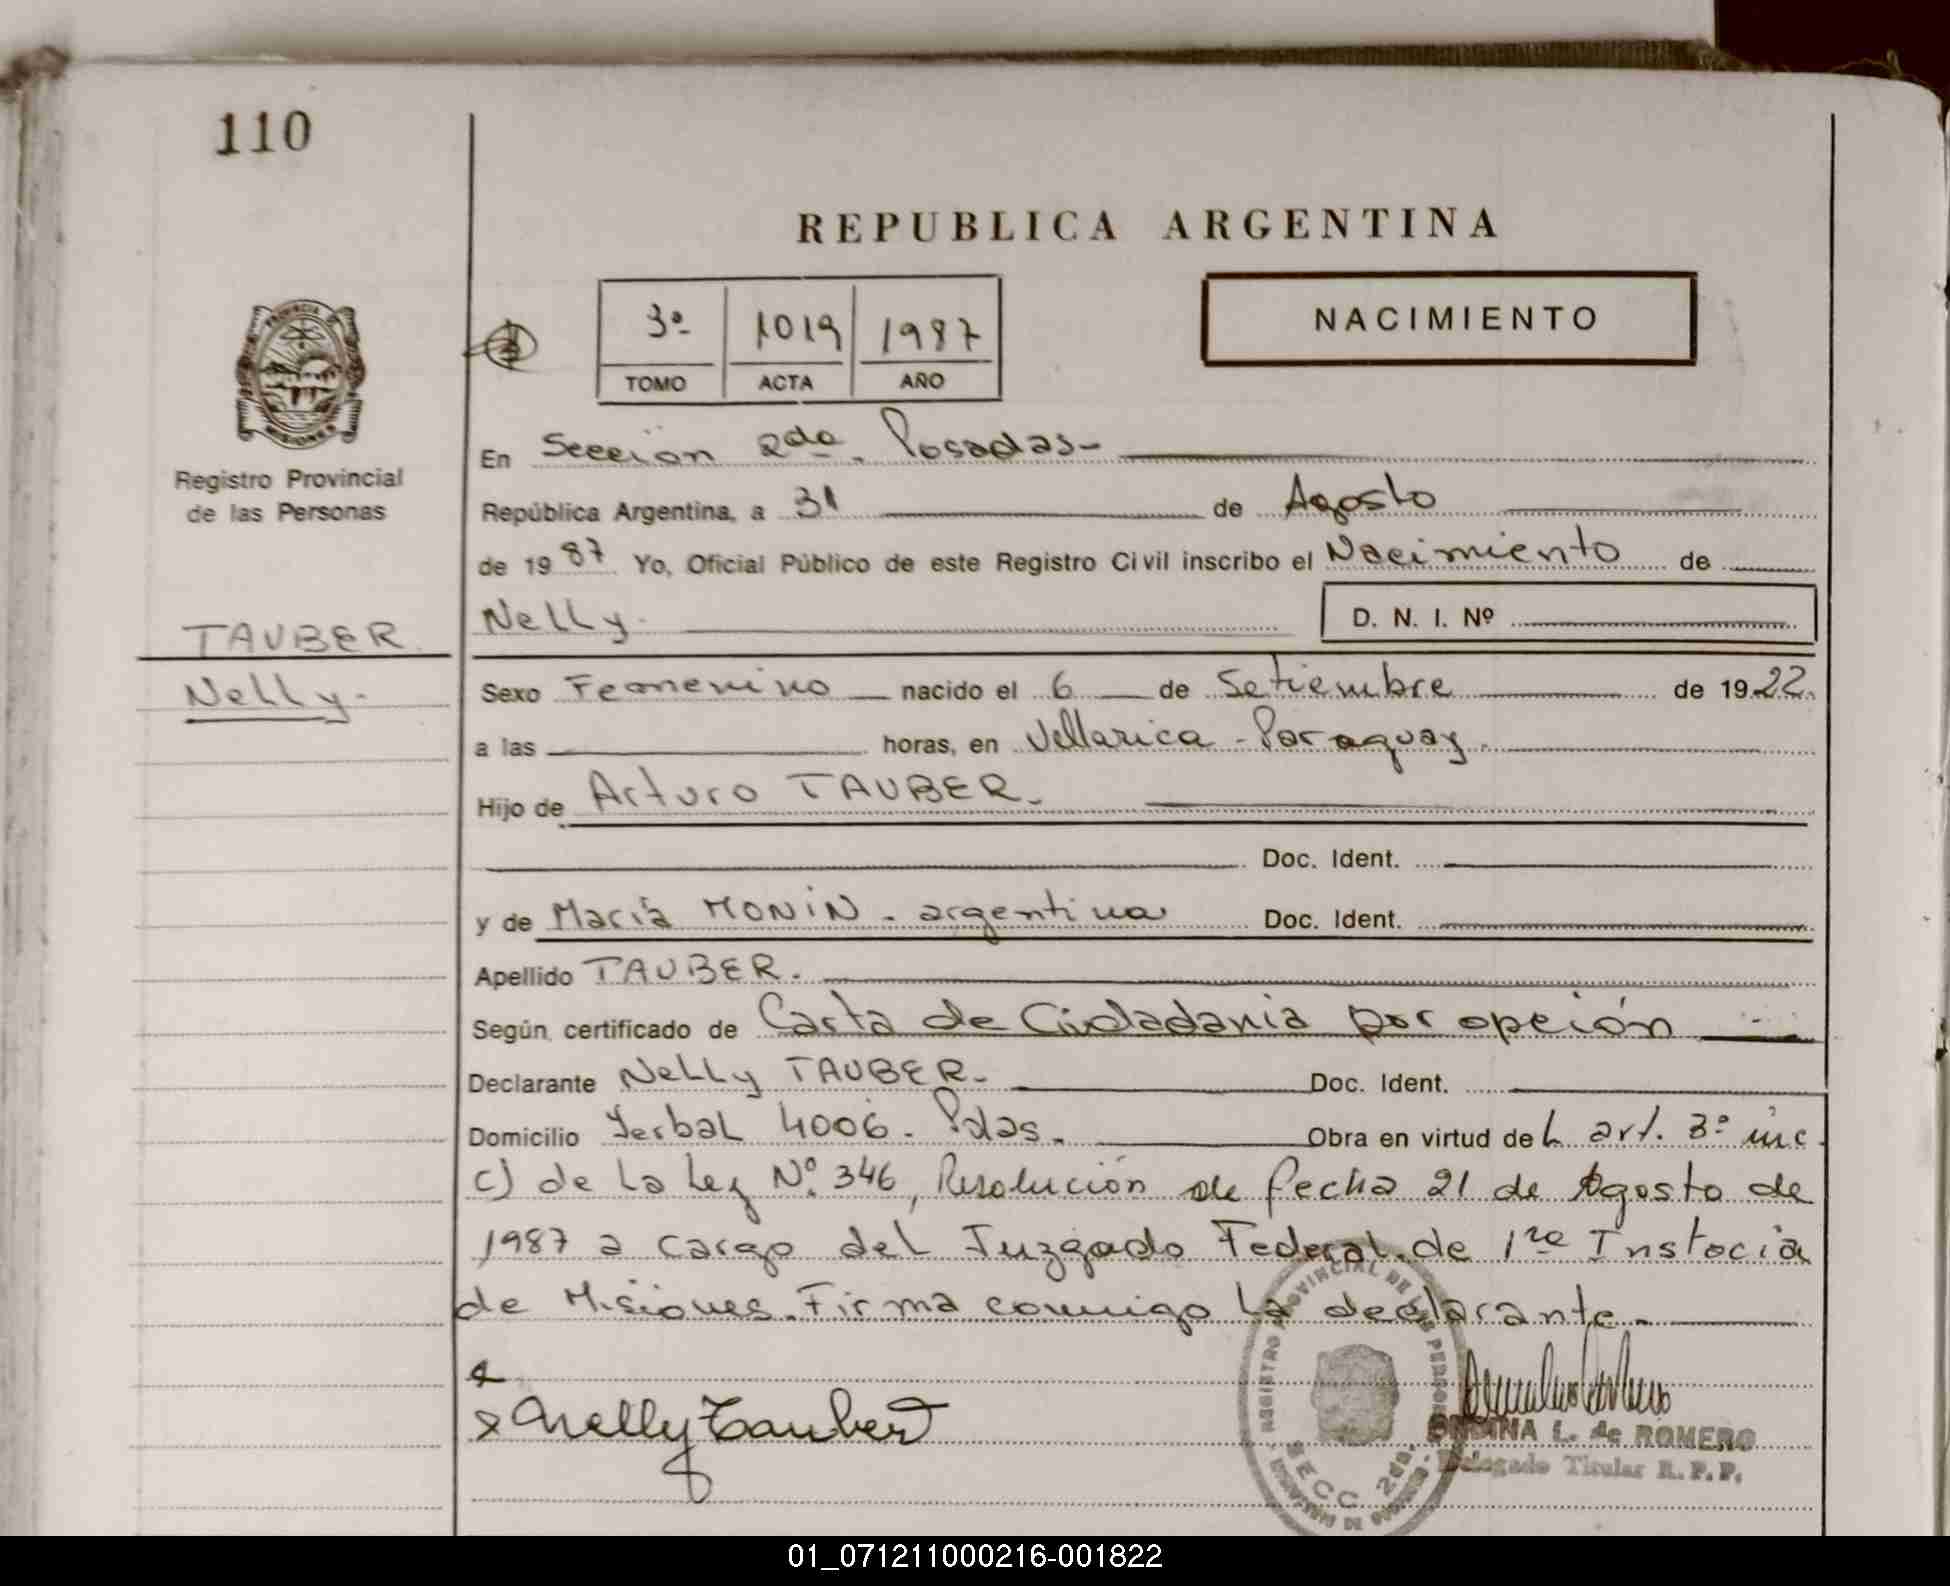 110
REPUBLICA ARGENTINA
3º 1019 1987
TOMO ACTA AÑO
NACIMIENTO
PROVINCIA
MISIONES
Registro Provincial
de las Personas
En Sección 2da. Posadas-
República Argentina, a 31 de Agosto
de 1987 Yo, Oficial Público de este Registro Civil inscribo el Nacimiento de
TAUBER
Nelly.
Nelly-
D. N. I. Nº
Sexo Femenino nacido el 6 de Setiembre de 1922.
a las horas, en Vellarica - Paraguay.
Hijo de Arturo TAUBER.
Doc. Ident.
y de María MONIN - argentina Doc. Ident.
Apellido TAUBER.
Según certificado de Carta de Ciudadanía por opción
Declarante Nelly TAUBER- Doc. Ident.
Domicilio Yerbal 4006. Pdas. Obra en virtud del art. 3º inc.
c) de la Ley Nº 346, Resolución de fecha 21 de Agosto de
1987 a cargo del Juzgado Federal de 1ra Instocia
de Misiones. Firma conmigo la declarante.
x Nelly Tauber
REGISTRO PROVINCIAL DE LAS PERSONAS
SECC 2da.
ONDINA L. de ROMERO
Delegado Titular R.P.P.
01_071211000216-001822